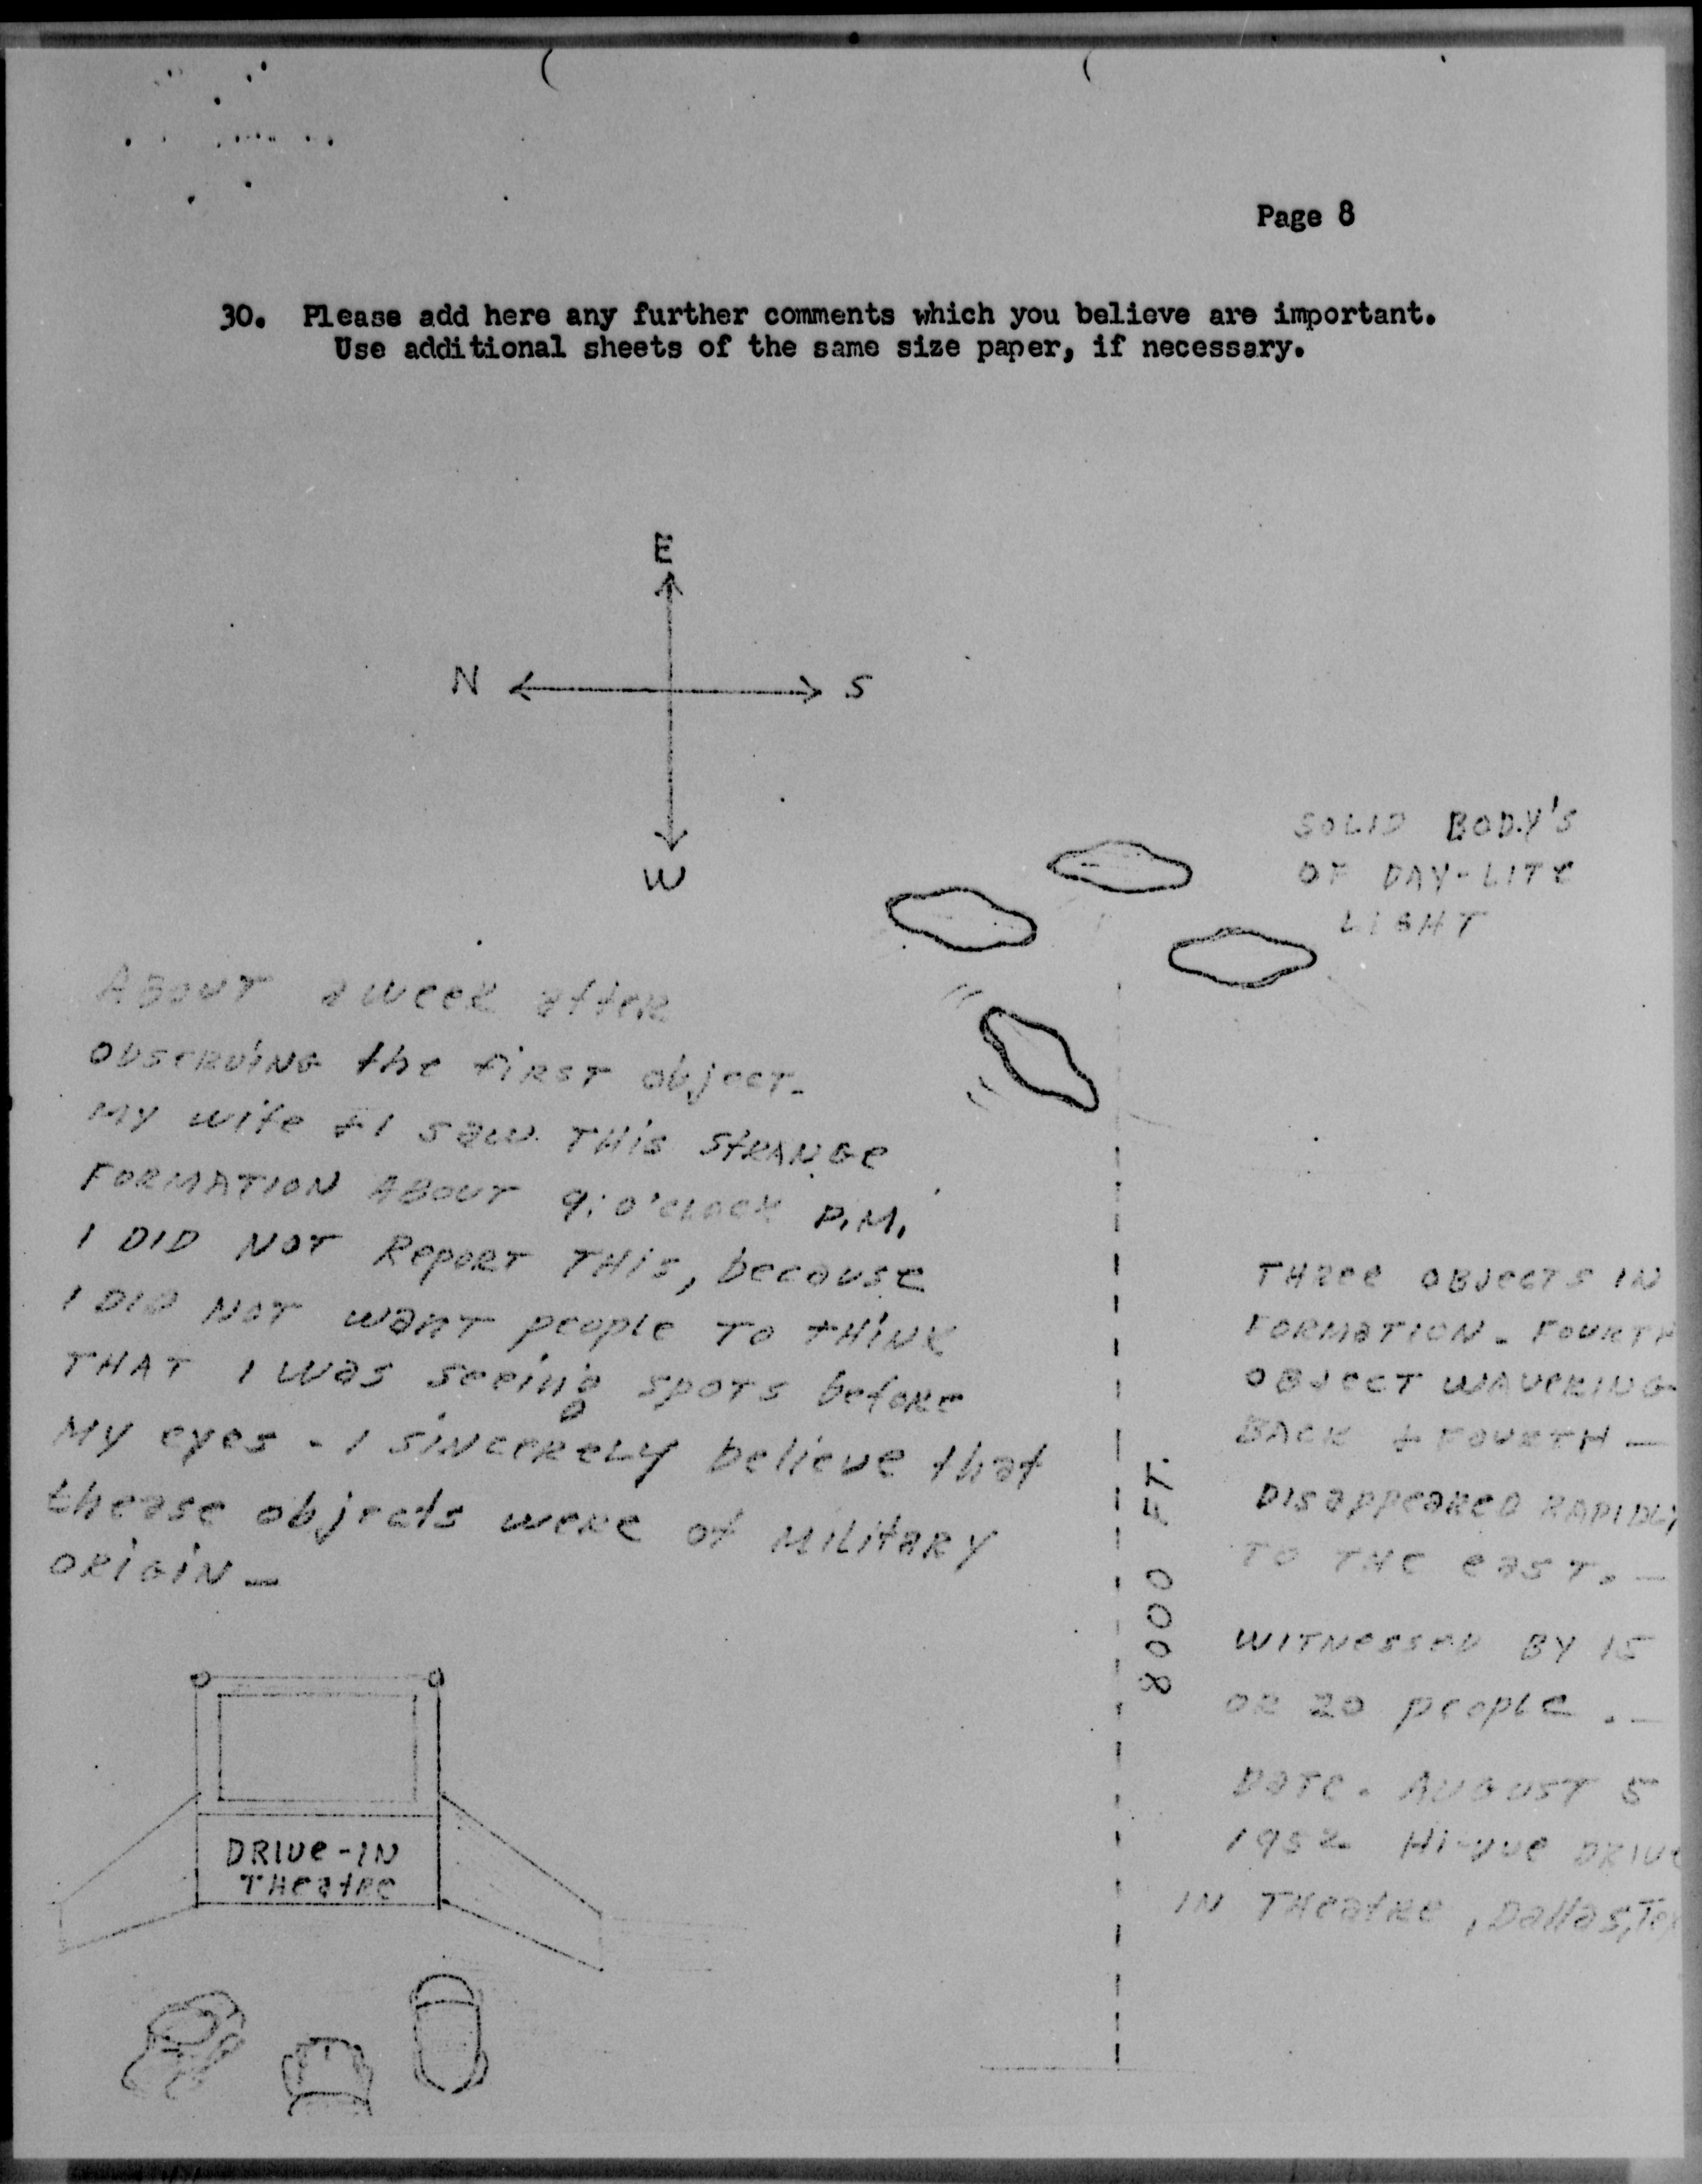 Page 8
30. Please add here any further comments which you believe are important.
Use additional sheets of the same size paper, if necessary.
E
N
S
W
SOLID BODY'S
OF DAY-LITE
LIGHT
ABOUT a week after
observing the first object.
My wife + I saw THIS STRANGE
FORMATION ABOUT 9:0'CLOCK P.M.
I DID NOT Report THIS, because
I DID NOT want people TO THINK
THAT I was seeing spots before
My eyes - I sincerely believe that
thease objects were of Military
ORIGIN -
8000 FT.
THREE OBJECTS IN
FORMATION - FOURTH
OBJECT WAVERING
BACK + FOURTH -
DISappeareD RAPIDLY
TO THE east. -
WITNESSED BY 15
OR 20 people . -
DATE. AUGUST 5
1952 HI-vue DRIVE
IN THeatre, Dallas, Tex
DRIVE-IN
THeatre